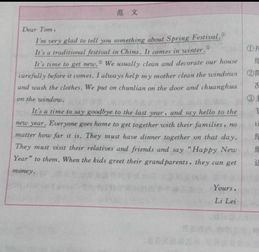 范 文
Dear Tom,
I'm very glad to tell you something about Spring Festival.①
It's a traditional festival in China. It comes in winter.②
It's time to get new.③ We usually clean and decorate our house
carefully before it comes. I always help my mother clean the windows
and wash the clothes. We put on chunlian on the door and chuanghua
on the window.
It's a time to say goodbye to the last year, and say hello to the
new year. Everyone goes home to get together with their families, no
matter how far it is. They must have dinner together on that day.
They must visit their relatives and friends and say "Happy New
Year" to them. When the kids greet their grandparents, they can get
money.
Yours,
Li Lei